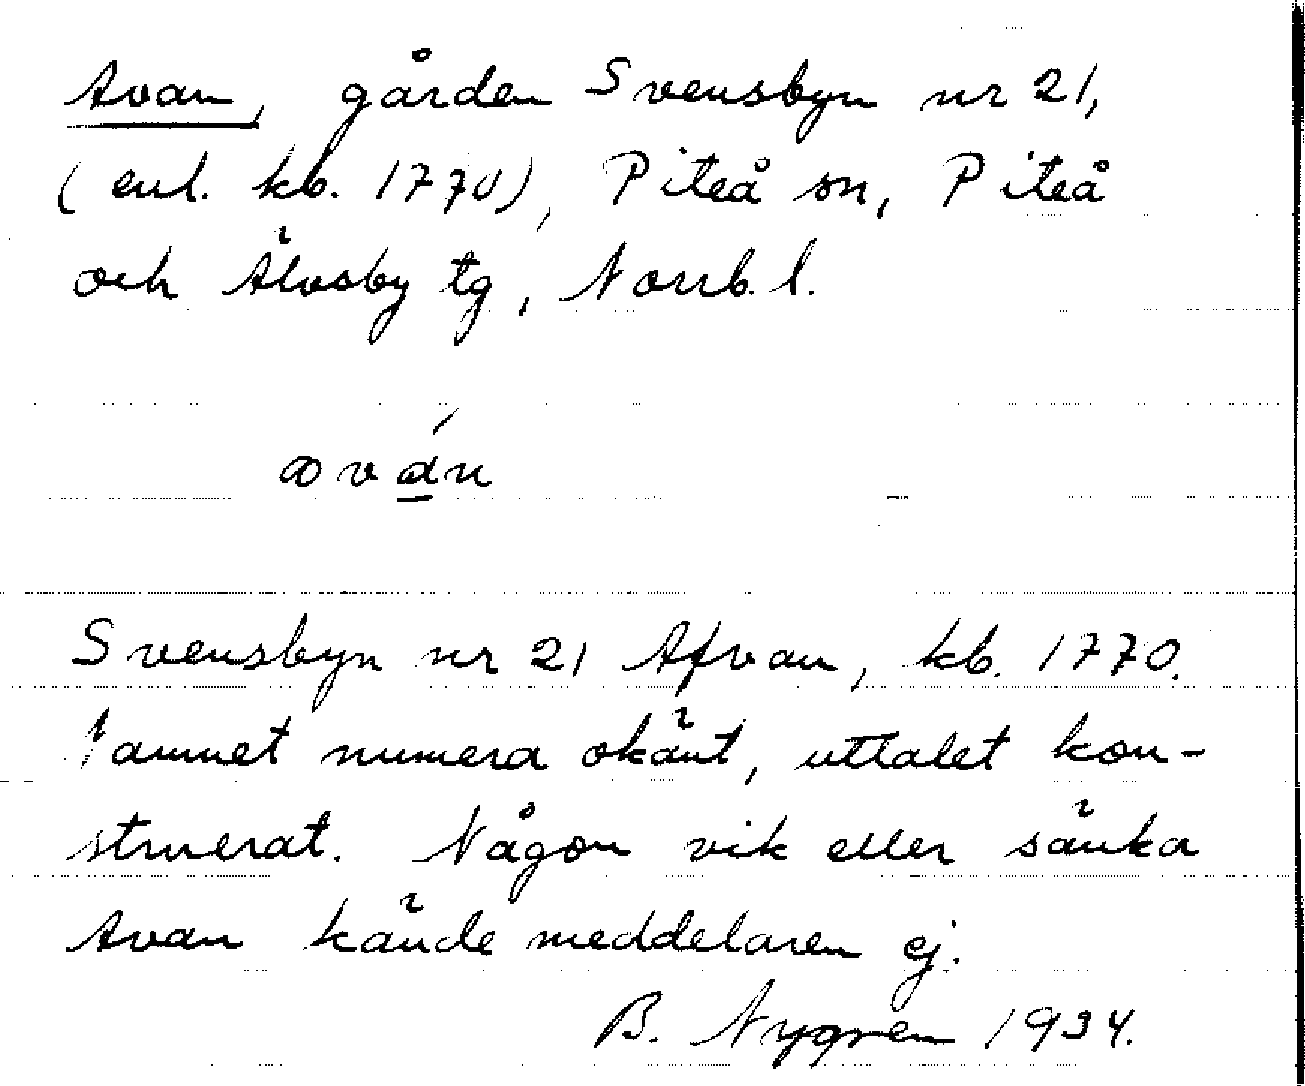 Avan, gården Svensbyn nr 21,
(enl. kb. 1770), Piteå sn, Piteå
och Älvsby tg, Norrb. l.
Svensbyn nr 21 Afvan, kb. 1770.
Namnet numera okänt, uttalet kon-
struerat. Någon vik eller sänka
Avan kände meddelaren ej.
B. Nygren 1934.